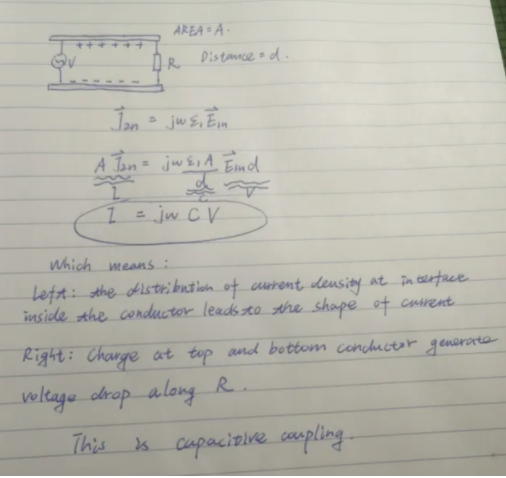 AREA = A.
+ + + + + +
V
R
Distance = d.
- - - - - -
J⃗2n = jw ε1 E⃗1n
A J⃗2n = jw ε1 A E⃗1n d
d
I C V
I = jw C V
Which means :
Left : the distribution of current density at interface
inside the conductor leads to the shape of current
Right : Charge at top and bottom conductor generate
voltage drop along R .
This is capacitive coupling.